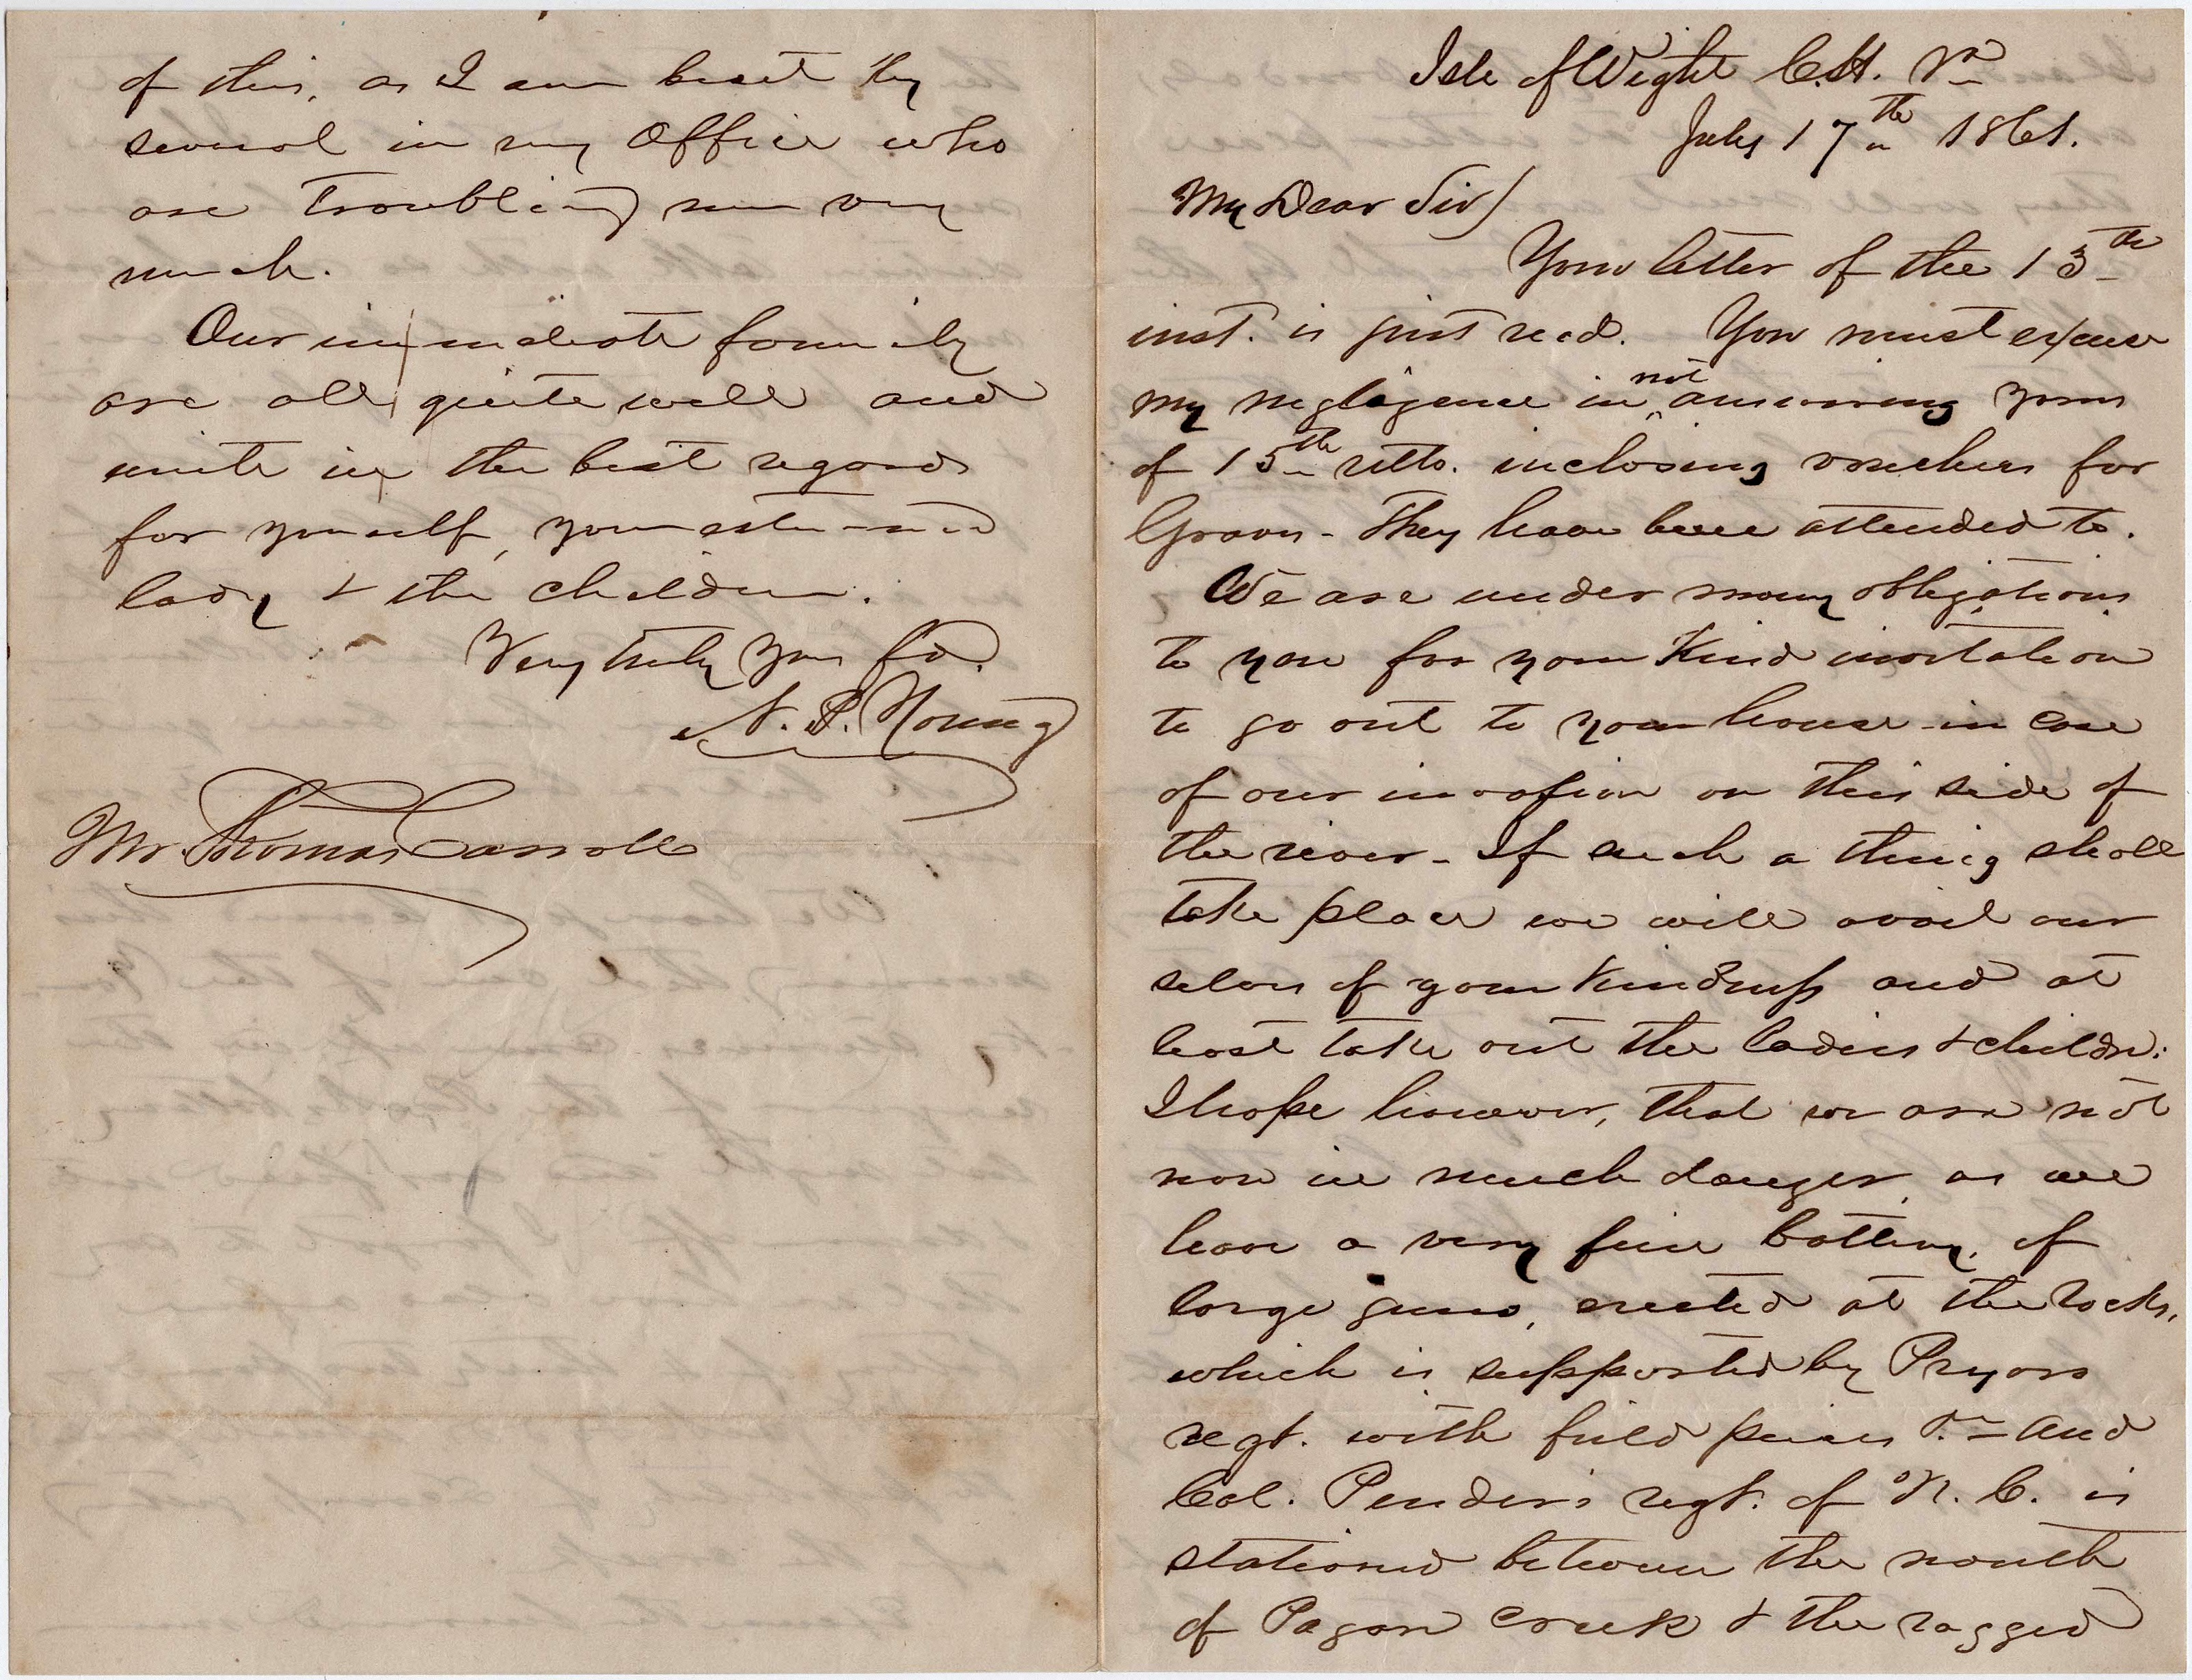 Isle of Wight C.H. Va
July 17th 1861.
My Dear Sir/
Your letter of the 13th
inst. is just recd. You must excuse
my negligence in not answering yours
of 15th ulto. inclosing vouchers for
They have been attended to.
We are under many obligations
to you for your Kind invitation
to go out to your house in case
of our invasion on this side of
the river - If such a thing shall
take place we will avail our
selves of your Kindness and at
least take out the ladies & childn:
I hope however, that we are not
now in much danger, as we
have a very fine battery, of
large guns, erected at the rocks,
which is supported by Pryors
regt. with field peices and
Col. Penders regt. of N. C. is
stationed between the mouth
of Pagan Creek & the ragged
of this, as I am beset by
several in my Office who
are troubling me very
much.
Our immediate family
are all quite well and
unite in the best regards
for yourself, your esteemed
lady & the children.
Very truly your fd.
N. P. Young
Mr. Thomas Carroll